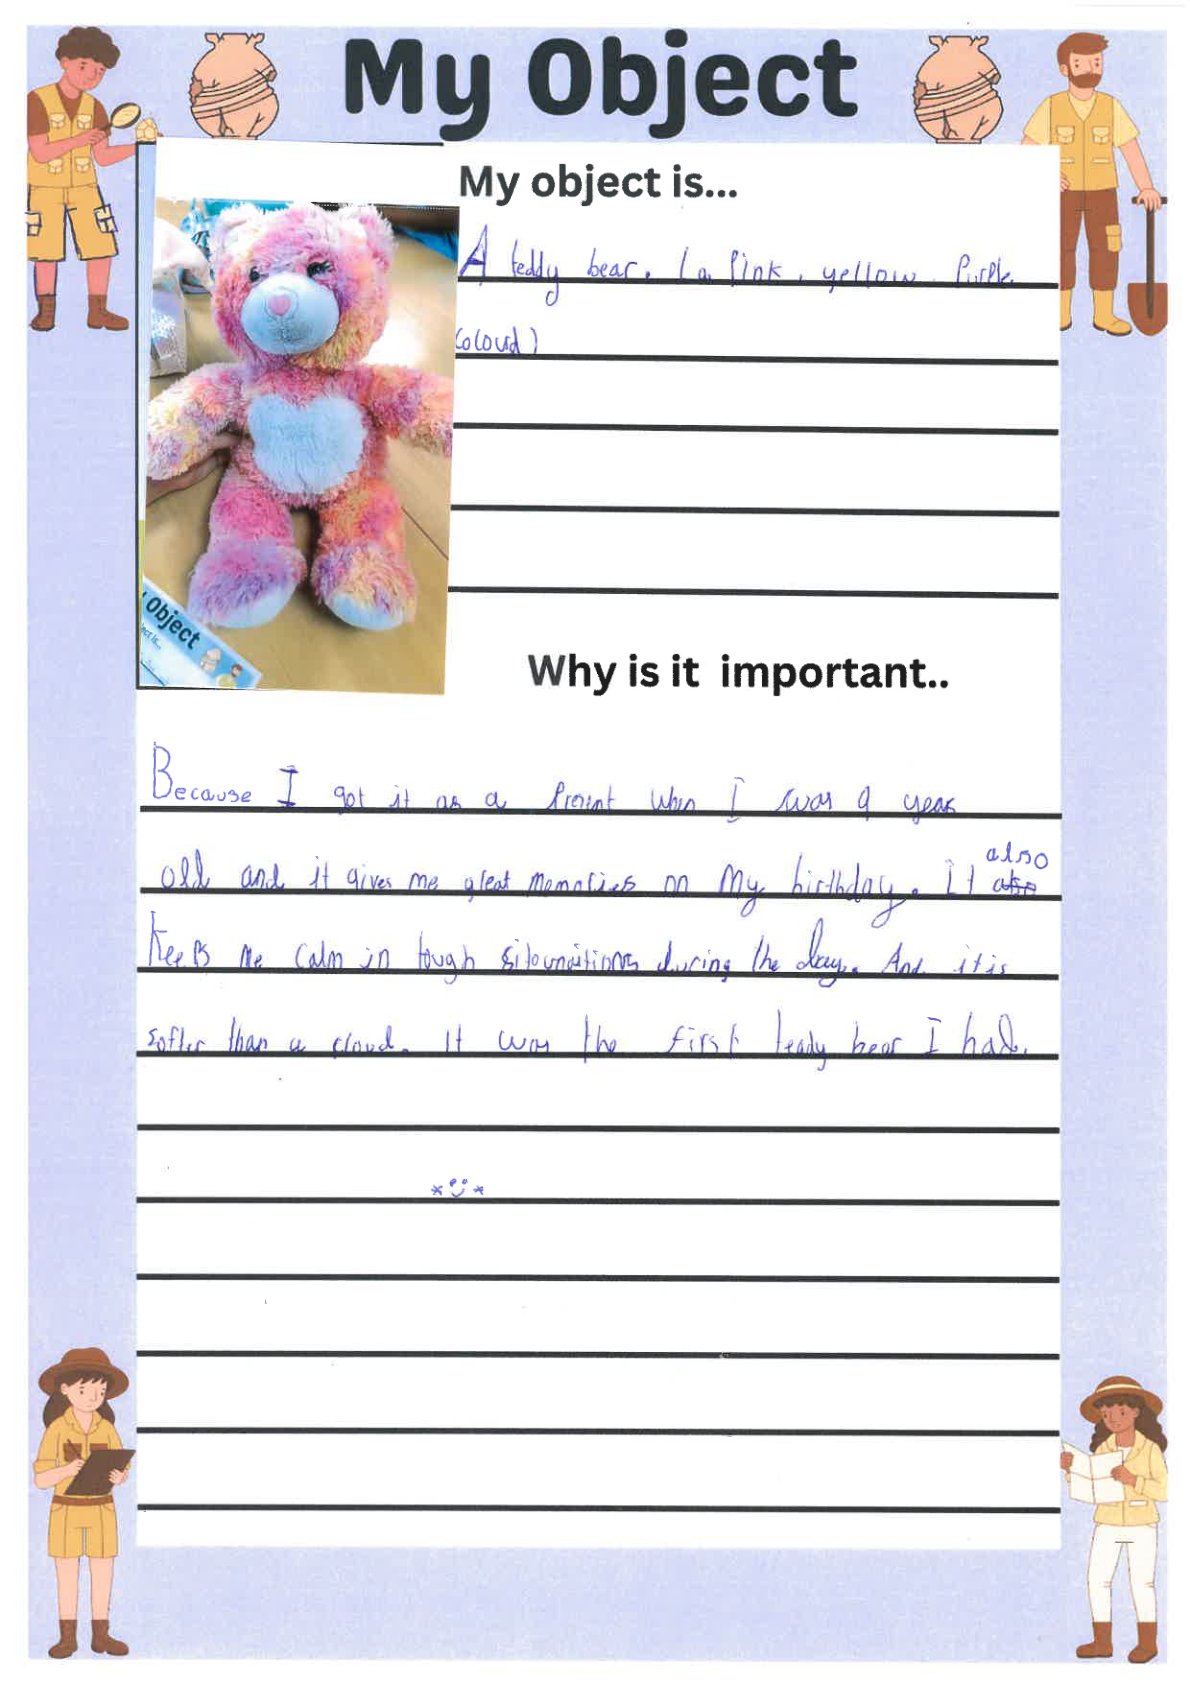 My Object
My object is...
A teddy bear. (a Pink, yellow, Purple
coloud)
Object
Why is it important..
Because I got it as a Present when I was 9 years
old and it gives me great memories on My birthday. It also
Keeps me calm in tough during the day. And it is
softer than a cloud. It was the first teddy bear I had.